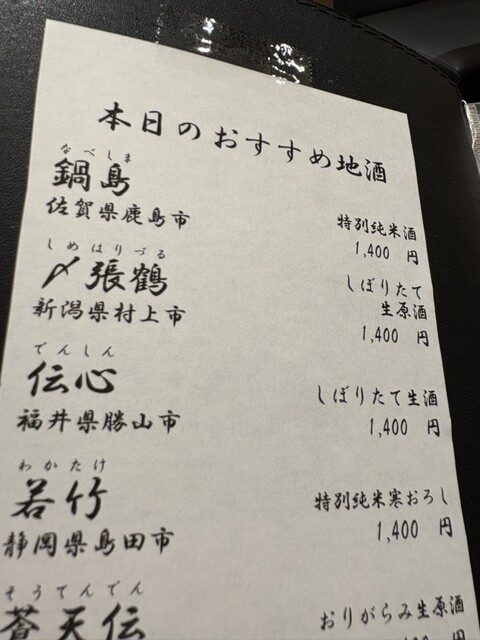 本日のおすすめ地酒
なべしま
鍋島
佐賀県鹿島市
特別純米酒
1,400 円
しめはりづる
〆張鶴
新潟県村上市
しぼりたて
生原酒
1,400 円
でんしん
伝心
福井県勝山市
しぼりたて生酒
1,400 円
わかたけ
若竹
静岡県島田市
特別純米寒おろし
1,400 円
そうてんでん
蒼天伝
おりがらみ生原酒